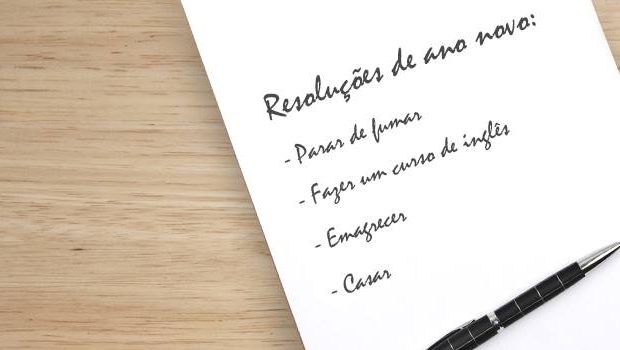 Resoluções de ano novo:
- Parar de fumar
- Fazer um curso de inglês
- Emagrecer
- Casar